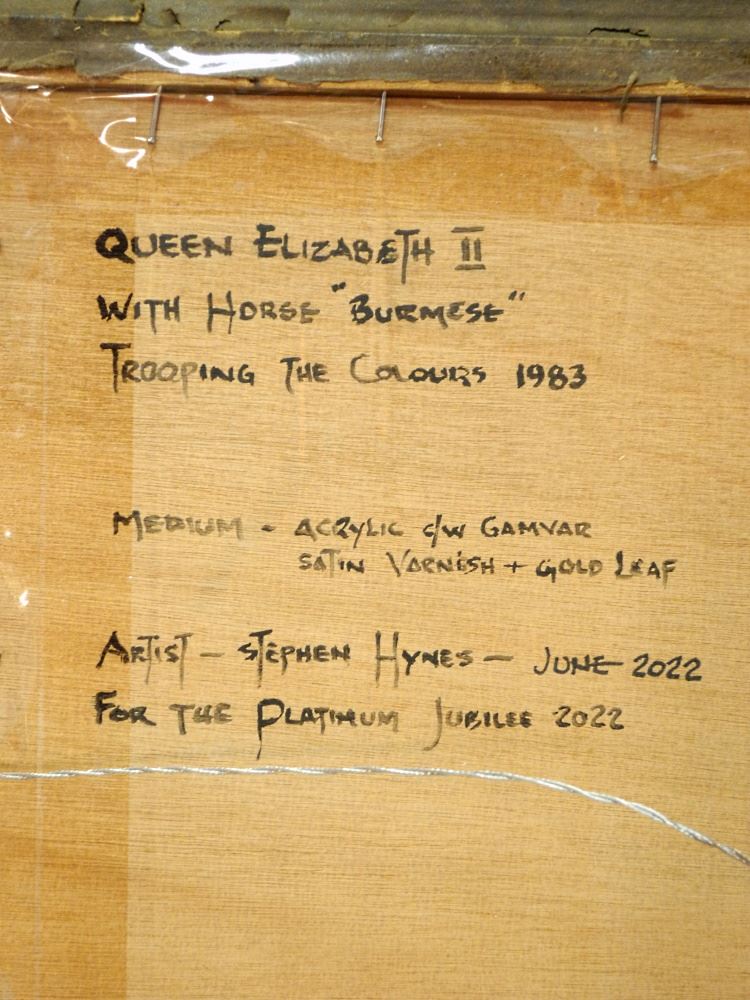 QUEEN ELIZABETH II
WITH HORSE "BURMESE"
TROOPING THE COLOURS 1983
MEDIUM - ACRYLIC c/w GAMVAR
SATIN VARNISH + GOLD LEAF
ARTIST - STEPHEN HYNES - JUNE 2022
FOR THE PLATINUM JUBILEE 2022